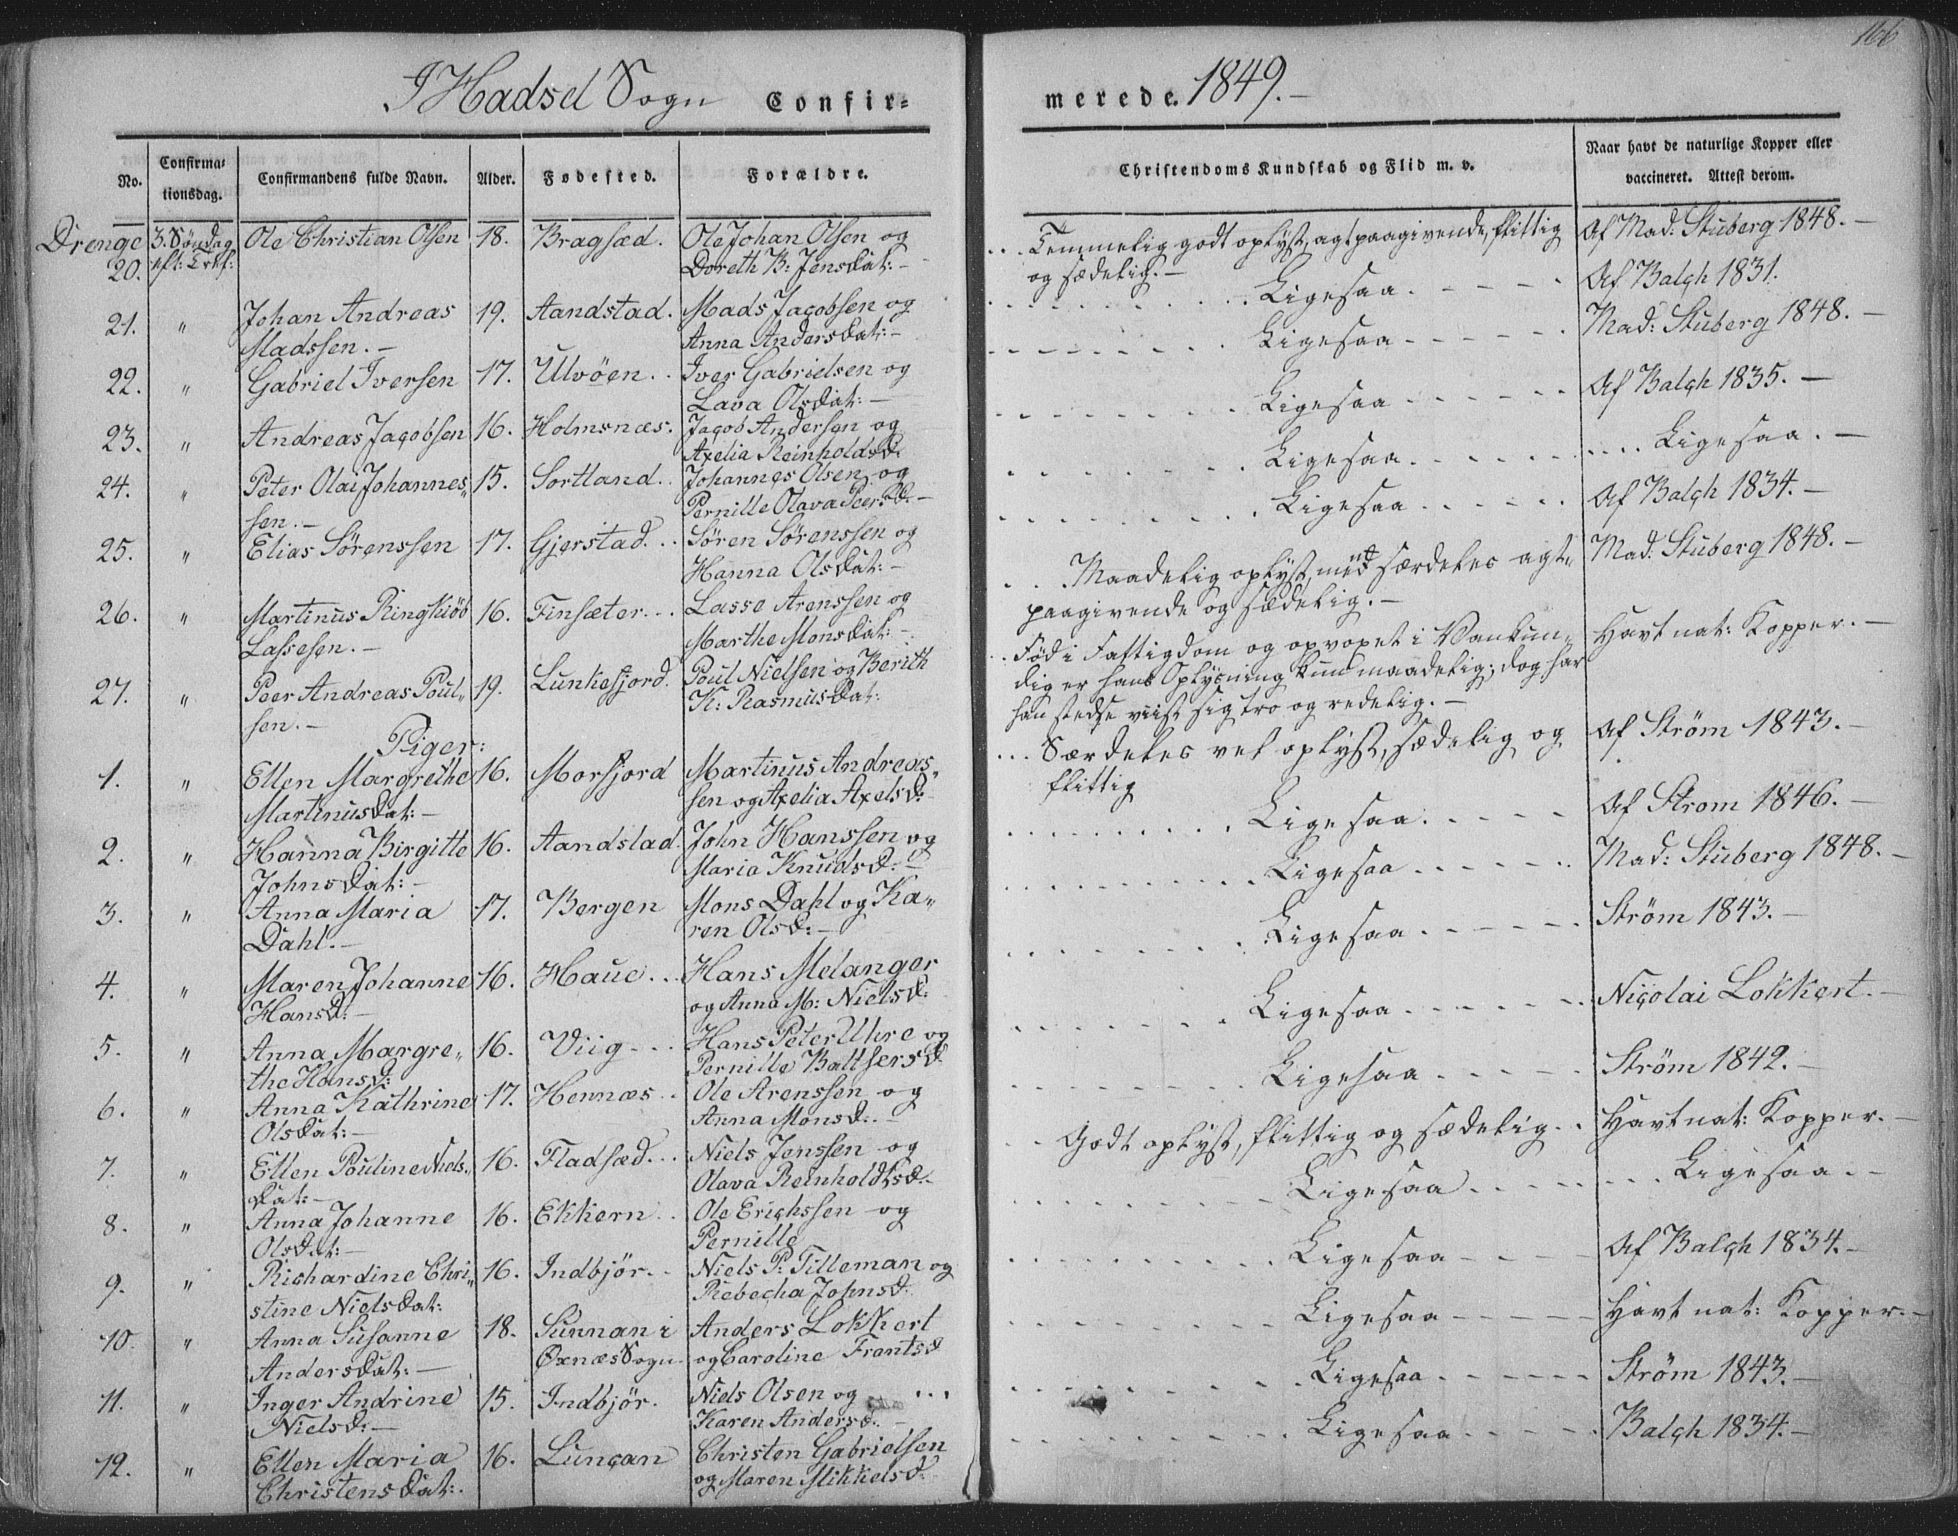 166
I Hadsel Sogn Confir-
merede. 1849.-
No.
Confirma-
tionsdag.
Confirmandens fulde Navn.
Alder.
Fødested.
Forældre.
Christendoms Kundskab og Flid m. v.
Naar havt de naturlige Kopper eller
vaccineret. Attest derom.
Drenge 3. Søndag Ole Christian Olsen 18. Bragsæd. Ole Johan Olsen og
20. eft: Tref: Doreth B: Jensdat:-
21. " Johan Andreas 19. Aandstad. Mads Jacobsen og
Madssen.- Anna Andersdat:-
22. " Gabriel Iversen 17. Ulvöen.. Iver Gabrielsen og
Lava Olsdat:-
23. " Andreas Jacobsen 16. Holmsnæs. Jacob Andersen og
Axelia Reinholdsd.
24. " Peter Olai Johannes" 15. Sortland.. Johannes Olsen og
sen.- Pernille Olava Peersd:-
25. " Elias Sørenssen 17. Gjerstad... Søren Sørenssen og
Hanna Olsdat:-
26. " Martinus Ringkiöb 16. Finsæter... Lasse Arenssen og
Lassesen.- Marthe Monsdat:-
27. " Peer Andreas Poul" 19. Lunkefjord. Poul Nielsen og Berith
sen.- K: Rasmusdat:
Piger:
1. " Ellen Margrethe 16. Morfjord Martinus Andreas"
Martinusdat:- sen og Axelia Axelsd:
2. " Hanna Birgitte 16. Aandstad. John Hanssen og
Johnsdat:- Maria Knudsd:-
3. " Anna Maria 17. Bergen Mons Dahl og Ka"
Dahl.- ren Olsd:-
4. " Maren Johanne 16. Hauc... Hans Melanger
Hansd:- og Anna M: Nielsd:
5. " Anna Margre" 16. Viig... Hans Peter Uhre og
the Hansd: Pernille Balthersd
6. " Anna Kathrine 17. Hennæs.. Ole Arenssen og
Olsdat:- Anna Monsd:-
7. " Ellen Pouline Niels" 16. Fladsæd... Niels Jenssen og
dat:- Olava Reinholdtsd:-
8. " Anna Johanne 16. Ekkern.. Ole Erichssen og
Olsdat:- Pernille
9. " Richardine Chri" 16. Indbjör.. Niels P: Tilleman og
stine Nielsdat: Rebecha Johnsd:
10. " Anna Susanne 18. Sunnan i Anders Lokkert
Andersdat:- Øxnæs Sogn. og Caroline Frantsd
11. " Inger Andrine 15. Indbjör. Niels Olsen og ...
Nielsd:- Karen Andersd:-
12. " Ellen Maria 16. Luncan Christen Gabrielsen
Christensdat:. og Maren Mikkelsd:
... Temmelig godt oplyst, agtpaagivende, flittig Af Mad: Stuberg 1848.-
og sædelig.-
Ligesaa. Af Balch 1831.
Ligesaa Mad: Stuberg 1848.-
Ligesaa Af Balch 1835.-
Ligesaa. Ligesaa.-
Ligesaa Af Balch 1834.-
Maadelig oplyst, med særdeles agt" Mad: Stuberg 1848.-
paagivende og sædelig.-
Fød i Fattigdom og opvoxet i Vankun" Havt nat: Kopper.-
dig er hans Oplysning kun maadelig; dog har
han stedse viist sig tro og redelig.-
... Særdeles vel oplyst, sædelig og Af Ström 1843.-
flittig
Ligesaa. Af Strom 1846.-
Ligesaa Mad: Stuberg 1848.-
Ligesaa Ström 1843.-
Ligesaa Nicolai Lokkert.-
Ligesaa Ström 1842.-
Godt oplyst, flittig og sædelig.. Havt nat: Kopper.-
Ligesaa Ligesaa.-
Ligesaa Af Balch 1834.-
Ligesaa Havt nat: Kopper.-
Ligesaa Ström 1843.-
Ligesaa Balch 1834.-